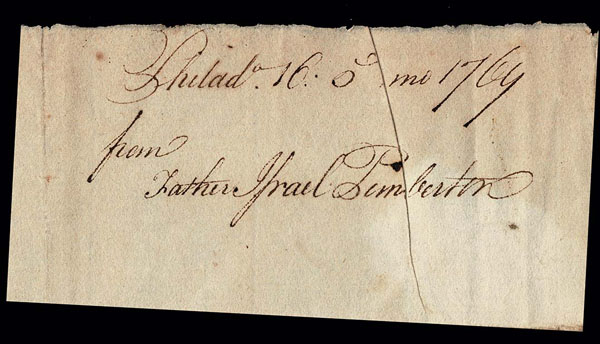 Philad.ᵃ 16: 5 mo 1769
from
Father Israel Pemberton